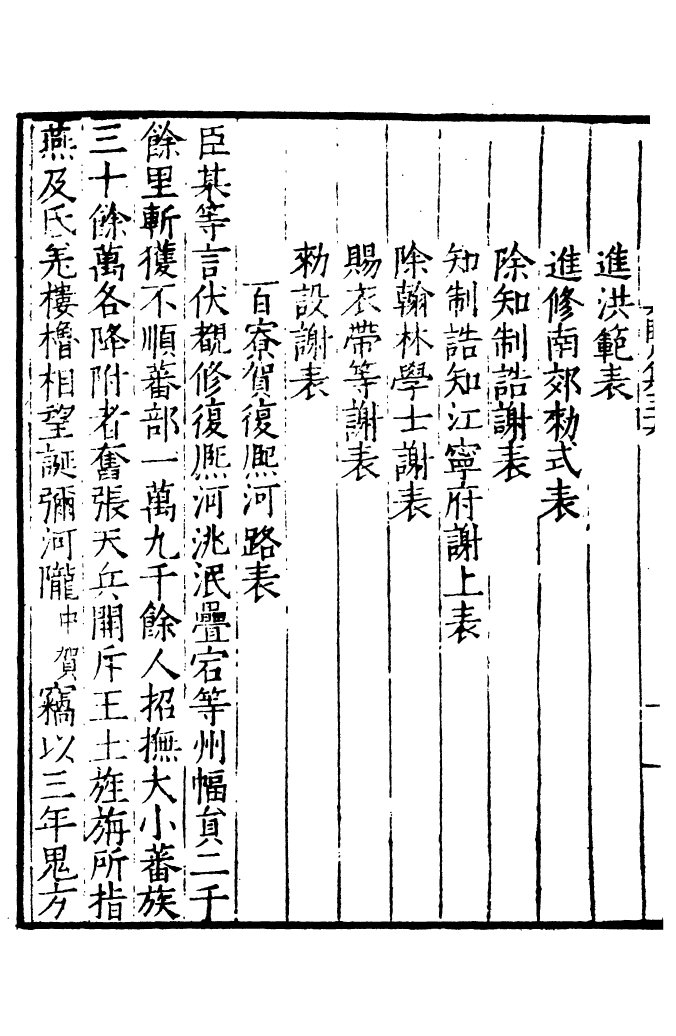 進洪範表
進修南郊勑式表
除知制誥謝表
知制誥知江寧府謝上表
除翰林學士謝表
賜衣帶等謝表
勑設謝表
百寮賀復熈河路表
臣某等言伏覩修復熈河洮泯疊宕等州幅貟二千
餘里斬獲不順蕃部一萬九千餘人招撫大小蕃族
三十餘萬各降附者奮張天兵開斥王土旌旃所指
燕及氐羌樓櫓相望誕彌河隴中賀竊以三年鬼方